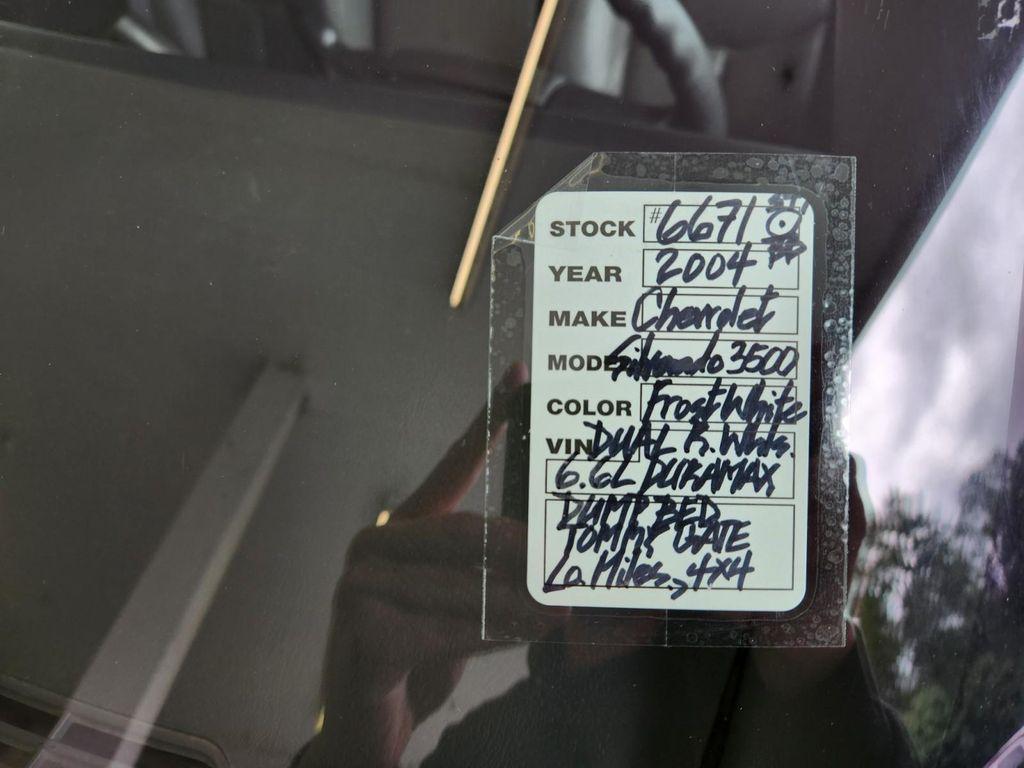 STOCK #6671
YEAR 2004
MAKE Chevrolet
MODEL Silverado 3500
COLOR Frost White
VIN DUAL R. Whls.
6.6L DURAMAX
DUMP BED
TOMMY GATE
Lo. Miles, 4x4